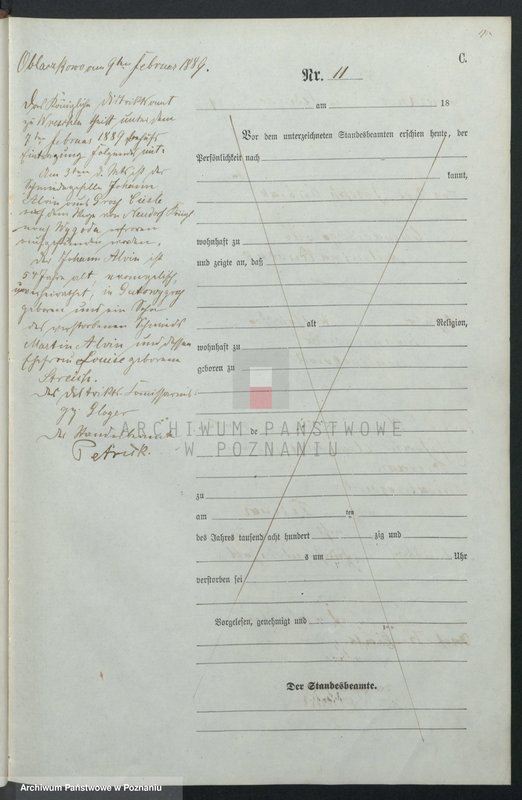 C.
Nr. 11
am 18
Vor dem unterzeichneten Standesbeamten erschien heute, der
Persönlichkeit nach
kannt,
wohnhaft zu
und zeigte an, daß
alt Religion,
wohnhaft zu
geboren zu
de
zu
am ten
des Jahres tausend acht hundert zig und
s um Uhr
verstorben sei
Vorgelesen, genehmigt und
Der Standesbeamte.
am 9ten Februar 1889.
Das Königliche Distriktsamt
zu Wreschen theilt unter dem
7ten Februar 1889
Eintragung folgendes mit:
Am 3ten d. Mts ist der
Schmiedegeselle Johann
Alvin aus
auf dem Wege von Neudorf
nach Wygoda erfroren
aufgefunden worden.
Der Johann Alvin ist
54 Jahre alt, evangelisch,
unverheirathet, in
geboren und ein Sohn
des verstorbenen Schmieds
Martin Alvin und dessen
Ehefrau Louise geborene
Der Distrikts-Commissarius
gez. Gloger
Der Standesbeamte
Petrick.
ARCHIWUM PAŃSTWOWE
W POZNANIU
Archiwum Państwowe w Poznaniu